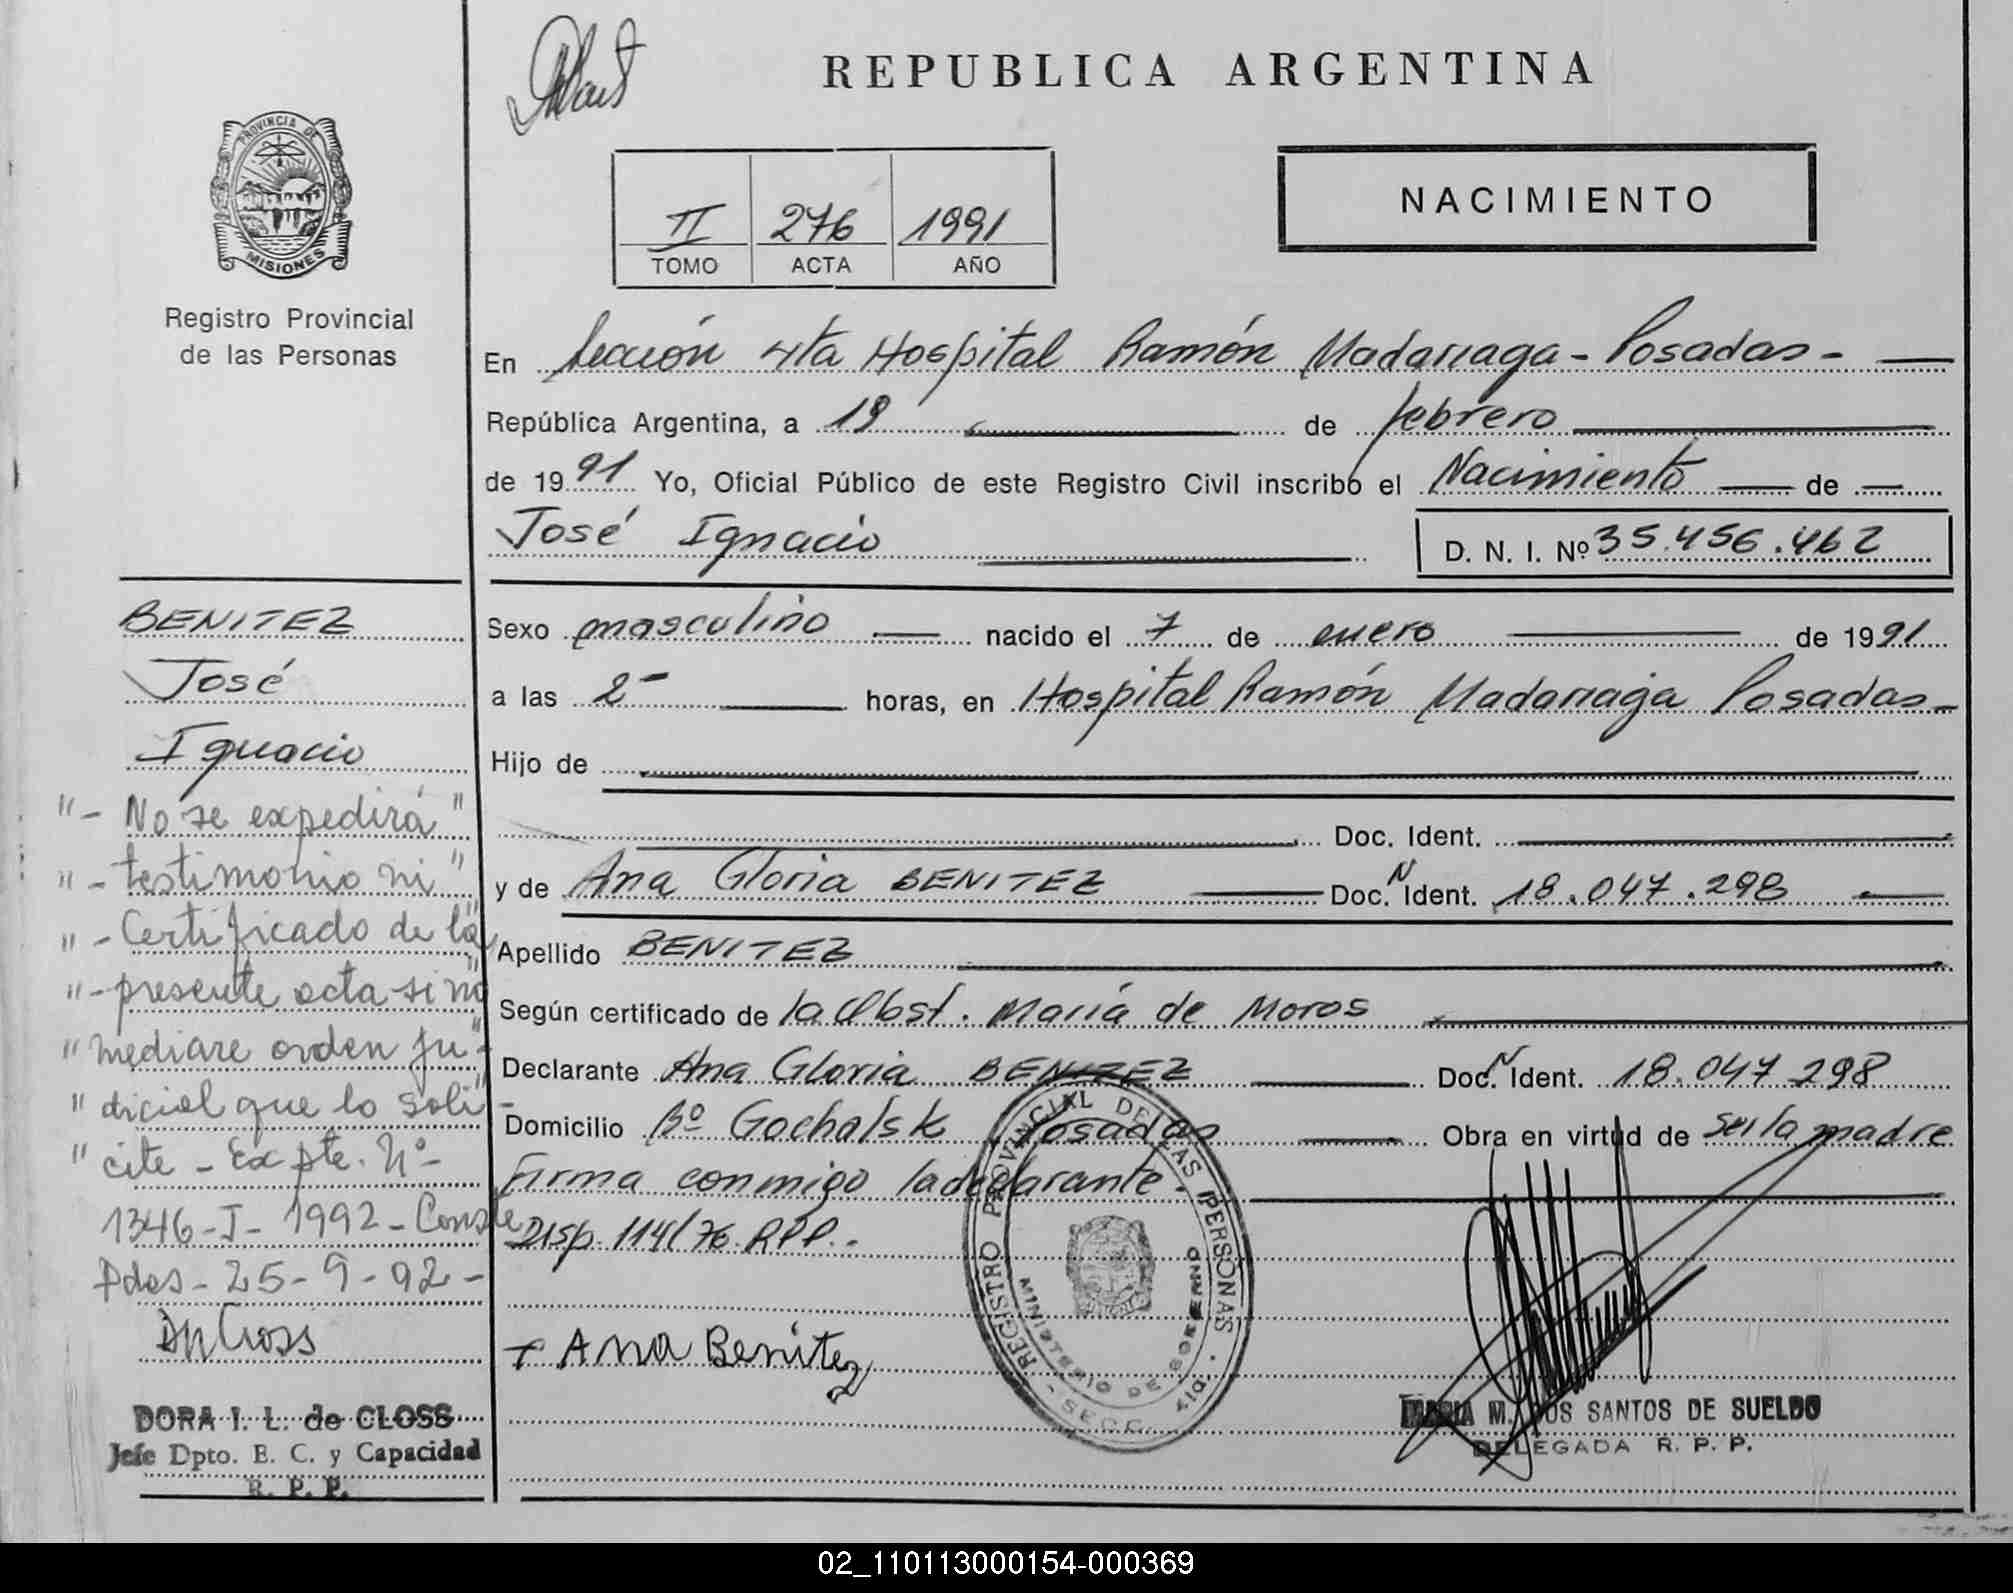 REPUBLICA ARGENTINA
PROVINCIA DE
MISIONES
Registro Provincial
de las Personas
II 276 1991
TOMO ACTA AÑO
NACIMIENTO
En Sección 4ta Hospital Ramón Madariaga - Posadas -
República Argentina, a 19 de febrero
de 1991 Yo, Oficial Público de este Registro Civil inscribo el Nacimiento de
José Ignacio D. N. I. Nº 35.456.462
Sexo masculino nacido el 7 de enero de 1991
a las 2 horas, en Hospital Ramón Madariaga Posadas -
Hijo de
Doc. Ident.
y de Ana Gloria BENITEZ Doc. N Ident. 18.047.298
Apellido BENITEZ
Según certificado de la Obst. María de Moros
Declarante Ana Gloria BENITEZ Doc. N Ident. 18.047.298
Domicilio Bº Posadas Obra en virtud de ser la madre
Firma conmigo la declarante.
Disp. 1141/76 R.P.P. -
+ Ana Benitez
REGISTRO PROVINCIAL DE LAS PERSONAS
MINISTERIO DE GOBIERNO
MARIA M. DOS SANTOS DE SUELDO
DELEGADA R. P. P.
BENITEZ
José
Ignacio
"- No se expedirá"
"- testimonio ni"
"- Certificado de la"
"- presente acta si no"
"mediare orden ju-"
"dicial que lo soli-"
"cite - Expte. Nº -
1346-I- 1992 - Conste
Pdas - 25-9-92 -
DORA I. L. de CLOSS
Jefe Dpto. E. C. y Capacidad
R. P. P.
02_110113000154-000369